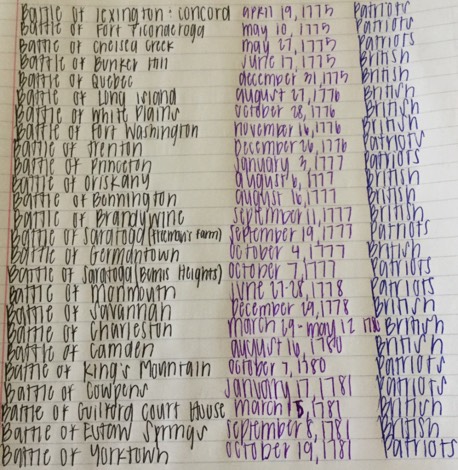 Battle of Lexington : Concord april 19, 1775 Patriots
Battle of Fort Ticonderoga may 10, 1775 Patriots
Battle of Chelsea Creek may 27, 1775 Patriots
Battle of Bunker Hill June 17, 1775 British
Battle of Quebec december 31, 1775 British
Battle of Long Island august 27, 1776 British
Battle of White Plains october 28, 1776 British
Battle of Fort Washington november 16, 1776 British
Battle of Trenton December 26, 1776 Patriots
Battle of Princeton January 3, 1777 Patriots
Battle of Oriskany august 6, 1777 British
Battle of Bennington august 16, 1777 British
Battle of Brandywine september 11, 1777 British
Battle of Saratoga (Freeman's Farm) September 19, 1777 Patriots
Battle of Germantown October 4, 1777 British
Battle of Saratoga (Bemis Heights) october 7, 1777 Patriots
Battle of Monmouth June 27-28, 1778 Patriots
Battle of Savannah December 29, 1778 British
Battle of Charleston march 29 - may 12 1780 British
Battle of Camden august 16, 1780 British
Battle of King's Mountain october 7, 1780 Patriots
Battle of Cowpens January 17, 1781 Patriots
Battle of Guilford Court House march 15, 1781 British
Battle of Eutaw Springs september 8, 1781 British
Battle of Yorktown October 19, 1781 Patriots